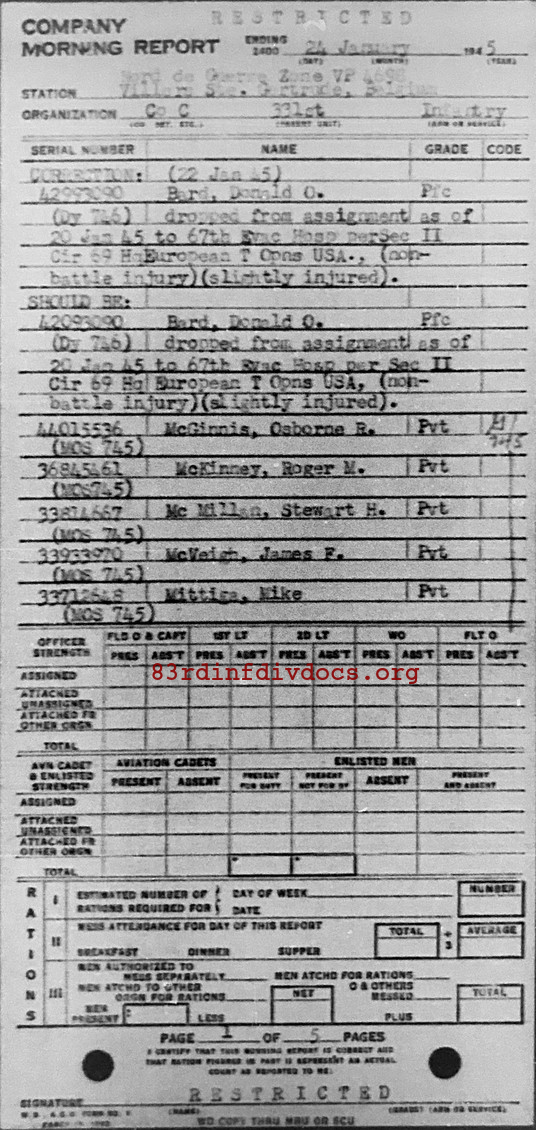 RESTRICTED
COMPANY
MORNING REPORT
ENDING 2400 24 January 1945
(DAY) (MONTH) (YEAR)
Bord de Guerre Zone VP 4698
STATION Villers Ste. Gertrude, Belgium
ORGANIZATION Co C 331st Infantry
(CO. DET. ETC.) (PARENT UNIT) (ARM OR SERVICE)
SERIAL NUMBER NAME GRADE CODE
CORRECTION: (22 Jan 45)
42993090 Bard, Donald O. Pfc
(Dy 746) dropped from assignment as of
20 Jan 45 to 67th Evac Hosp perSec II
Cir 69 HqEuropean T Opns USA., (non-
battle injury)(slightly injured).
SHOULD BE:
42093090 Bard, Donald O. Pfc
(Dy 746) dropped from assignment as of
20 Jan 45 to 67th Evac Hosp per Sec II
Cir 69 Hq European T Opns USA, (non-
battle injury)(slightly injured).
44015536 McGinnis, Osborne R. Pvt
(MOS 745) 745
36845461 McKinney, Roger M. Pvt
(MOS745)
33814667 Mc Millan, Stewart H. Pvt
(MOS 745)
33933970 McVeigh, James F. Pvt
(MOS 745)
33712648 Mittiga, Mike Pvt
(MOS 745)
OFFICER STRENGTH FLD O & CAPT 1ST LT 2D LT WO FLT O
PRES ABS'T PRES ABS'T PRES ABS'T PRES ABS'T PRES ABS'T
83rdinfdivdocs.org
ASSIGNED
ATTACHED UNASSIGNED
ATTACHED FR OTHER ORGN
TOTAL
AVN CADET & ENLISTED STRENGTH AVIATION CADETS ENLISTED MEN
PRESENT ABSENT PRESENT FOR DUTY PRESENT NOT FOR DY ABSENT PRESENT AND ABSENT
ASSIGNED
ATTACHED UNASSIGNED
ATTACHED FR OTHER ORGN
TOTAL
RATIONS
I ESTIMATED NUMBER OF DAY OF WEEK NUMBER
RATIONS REQUIRED FOR DATE
II MESS ATTENDANCE FOR DAY OF THIS REPORT TOTAL ÷ 3 AVERAGE
BREAKFAST DINNER SUPPER
III MEN AUTHORIZED TO MESS SEPARATELY MEN ATCHD FOR RATIONS
MEN ATCHD TO OTHER ORGN FOR RATIONS NET O & OTHERS MESSED TOTAL
MEN PRESENT LESS PLUS
PAGE 1 OF 5 PAGES
I CERTIFY THAT THIS MORNING REPORT IS CORRECT AND
THAT RATION FIGURES IN PART III REPRESENT AN ACTUAL
COUNT AS REPORTED TO ME:
RESTRICTED
SIGNATURE
(NAME) (GRADE) (ARM OR SERVICE)
W.D., A.G.O. FORM NO. 1
WD COPY THRU MRU OR SCU